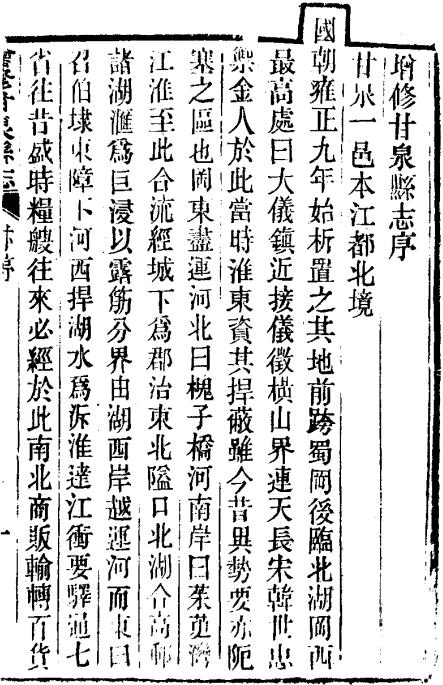 增修甘泉縣志序
甘泉一邑本江都北境
國朝雍正九年始析置之其地前跨蜀岡後臨北湖岡西
最高處曰大儀鎮近接儀徵橫山界連天長宋韓世忠
禦金人於此當時淮東資其捍蔽雖今昔異勢要亦阨
塞之區也岡東盡運河北曰槐子橋河南岸曰茱萸灣
江淮至此合流經城下爲郡治東北隘口北湖合高郵
諸湖滙爲巨浸以露筋分界由湖西岸越運河而東曰
召伯埭東障下河西捍湖水爲泝淮達江衝要驛通七
省往昔盛時糧艘往來必經於此南北商販輸轉百貨
增修甘泉縣志
序
一